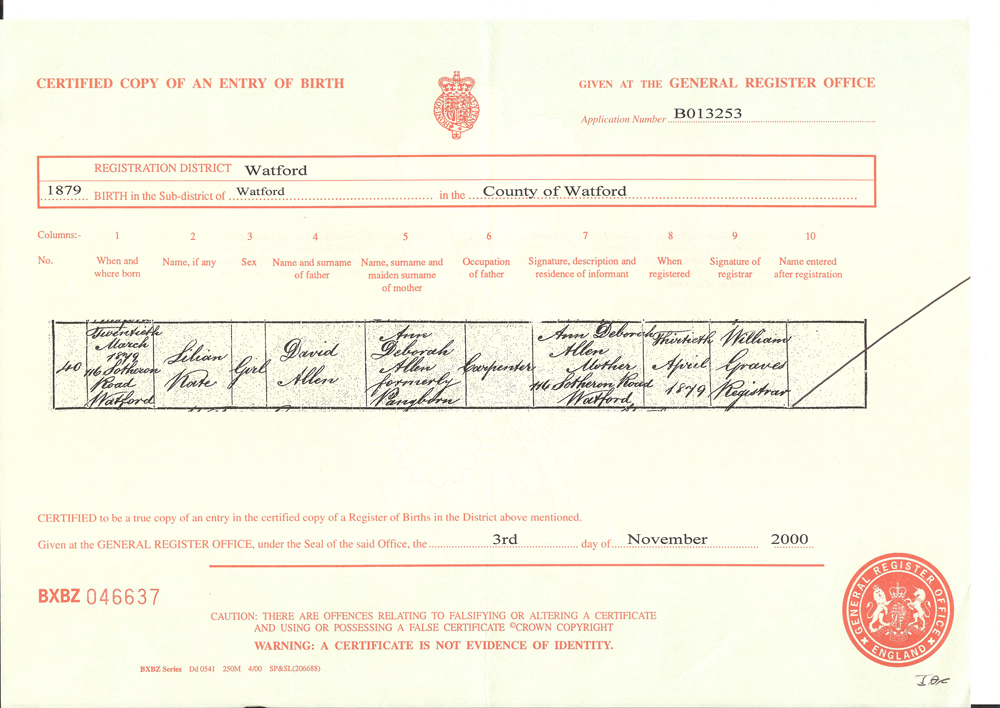 CERTIFIED COPY OF AN ENTRY OF BIRTH
GIVEN AT THE GENERAL REGISTER OFFICE
Application Number B013253
REGISTRATION DISTRICT Watford
1879 BIRTH in the Sub-district of Watford in the County of Watford
Columns:- 1 2 3 4 5 6 7 8 9 10
No. When and where born Name, if any Sex Name and surname of father Name, surname and maiden surname of mother Occupation of father Signature, description and residence of informant When registered Signature of registrar Name entered after registration
40
Twentieth
March
1879
116 Sotheron
Road
Watford
Lilian
Kate
Girl
David
Allen
Ann
Deborah
Allen
formerly
Pangborn
Carpenter
Ann Deborah
Allen
Mother
116 Sotheron Road
Watford
Thirtieth
April
1879
William
Graves
Registrar
CERTIFIED to be a true copy of an entry in the certified copy of a Register of Births in the District above mentioned.
Given at the GENERAL REGISTER OFFICE, under the Seal of the said Office, the 3rd day of November 2000
BXBZ 046637
CAUTION: THERE ARE OFFENCES RELATING TO FALSIFYING OR ALTERING A CERTIFICATE
AND USING OR POSSESSING A FALSE CERTIFICATE ©CROWN COPYRIGHT
WARNING: A CERTIFICATE IS NOT EVIDENCE OF IDENTITY.
BXBZ Series Dd 0541 250M 4/00 SP&SL(206688)
GENERAL REGISTER OFFICE
ENGLAND